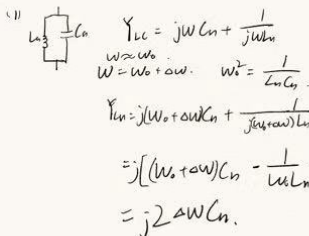 (1)
Ln Cn
Y_LC = jωCn + 1/(jωLn)
ω≈ω₀.
ω = ω₀ + Δω. ω₀² = 1/(LnCn).
Y_Ln = j(ω₀+Δω)Cn + 1/(j(ω₀+Δω)Ln)
=j[(ω₀+Δω)Cn - 1/(ω₀Ln)
= j2ΔωCn.